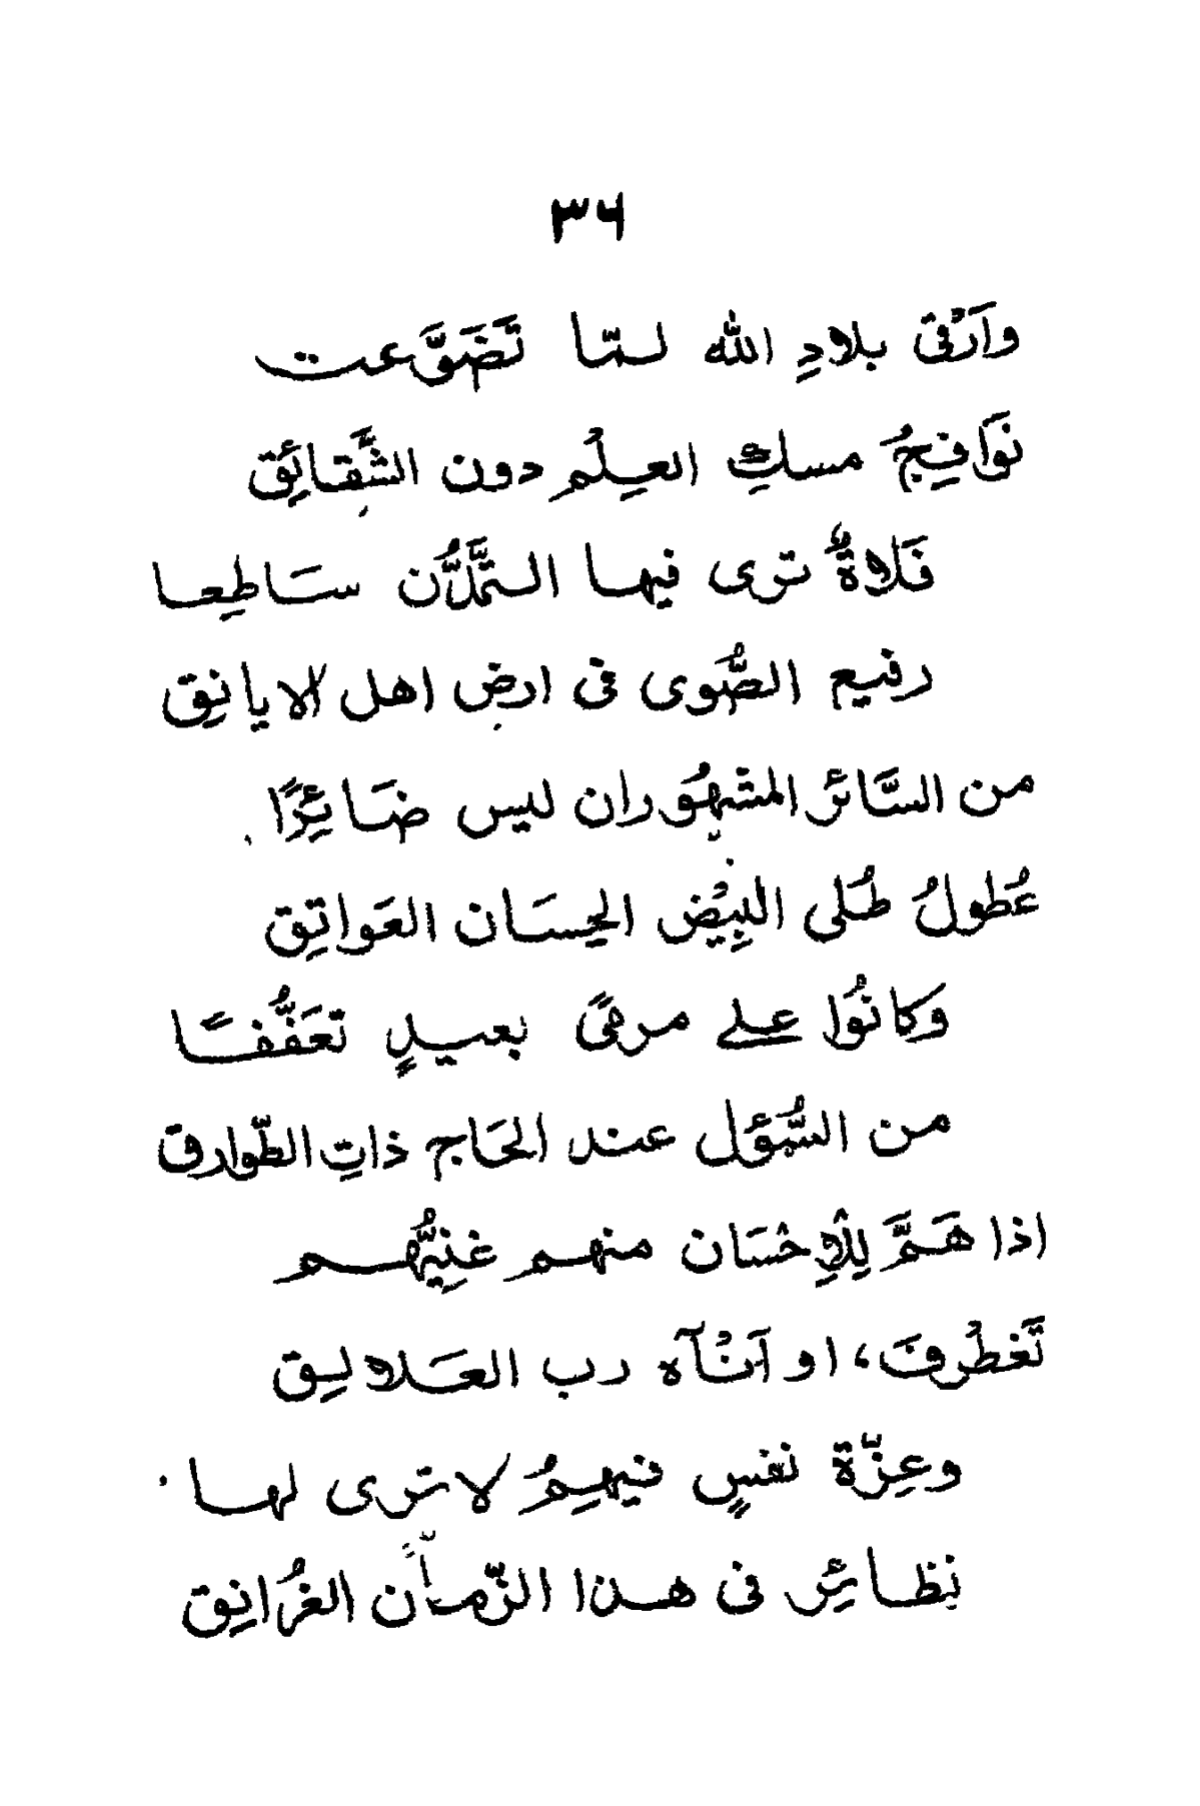 ٣٦
وَاَرْقىٰ بلادِ الله لـمّا تَضَوَّعت
نَوَافِجُ مسكِ العِلْم دون الشَّقائِق
فَلاةٌ ترى فيها التَّمَدُّن سَاطِعا
رفيع الصُّوَى فى ارض اهل الايانِق
من السَّائر المشهُور ان ليس ضَائِرًا
عُطولُ طُلى البِيْض الحِسَان العَواتِق
وَكانُوا على مرمىً بعيدٍ تعَفُّفًا
من السُّؤل عند الحَاج ذاتِ الطّوارق
اذا هَمَّ بِالْاِحْسَان منهم غنِيُّهم
تَغَطْرفَ، او آنْآه رب العَلالِيق
وعِزّة نفسٍ فيهِمُ لا ترى لها
نظائِر فى هذا الزّمان الغُرانِق